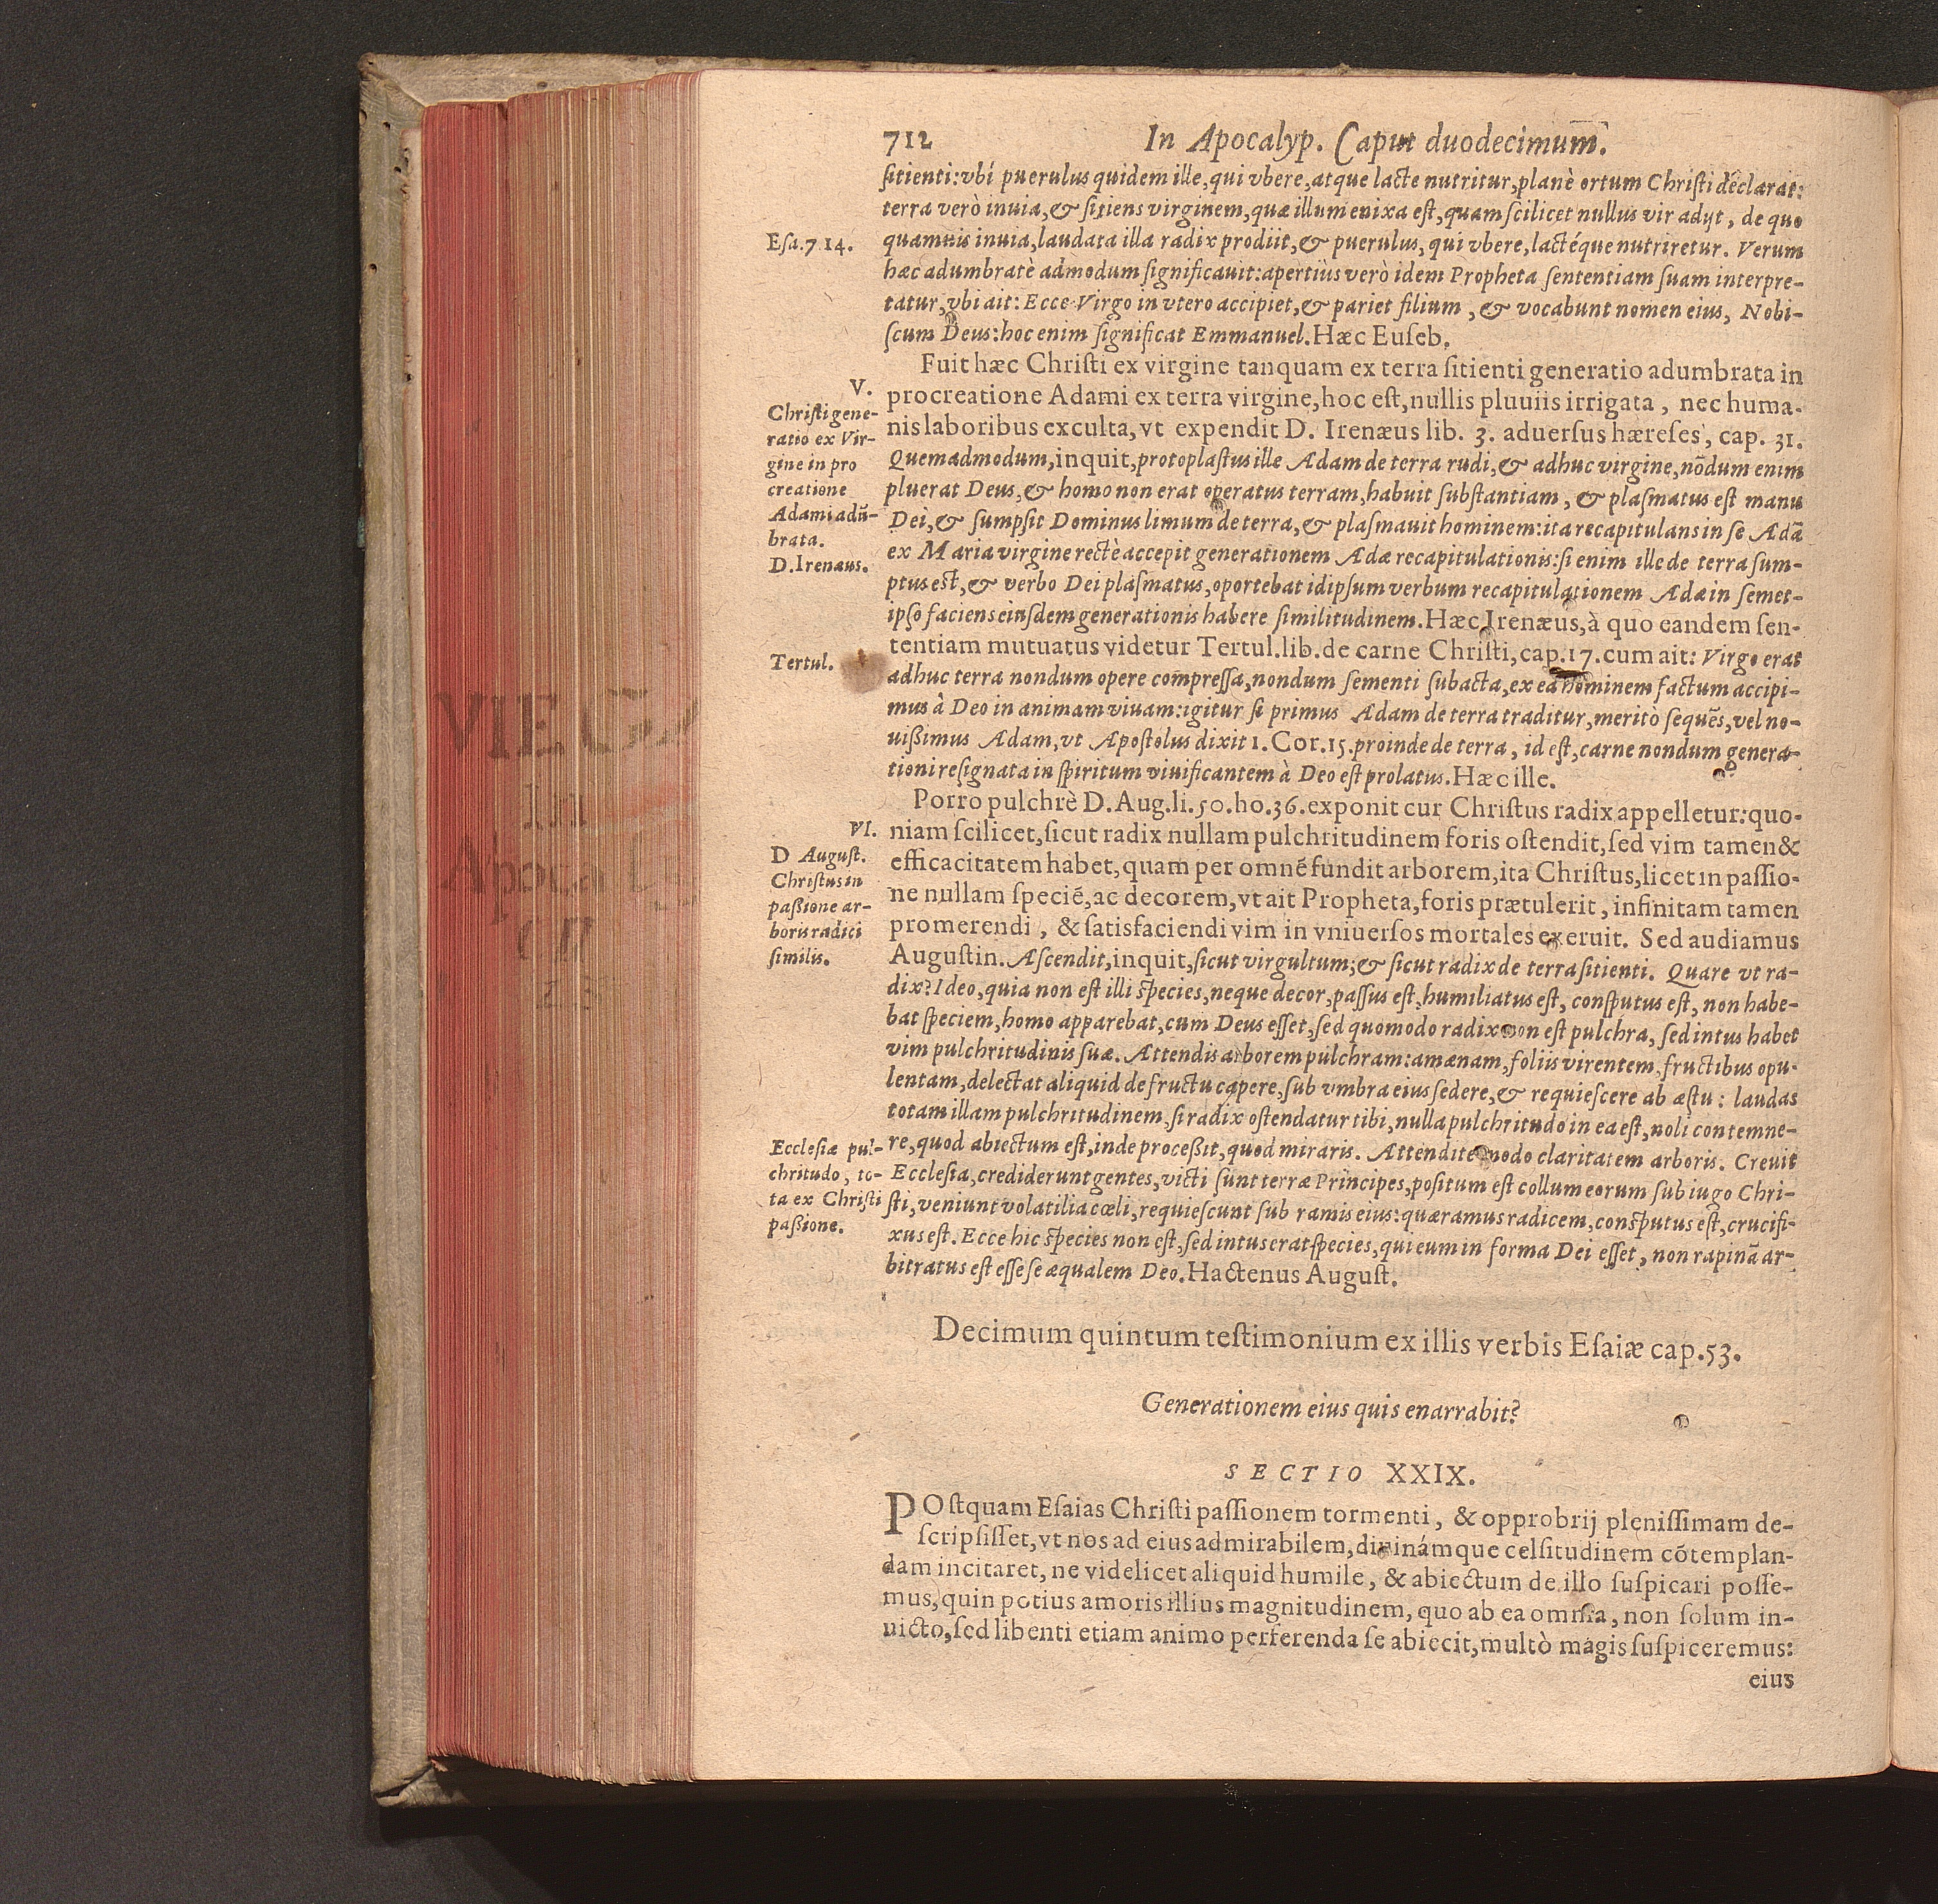 712 In Apocalyp. Caput duodecimum.
sitienti: vbi puerulus quidem ille, qui vbere, atque lacte nutritur, planè ortum Christi declarat:
terra verò inuia, & sitiens virginem, quæ illum enixa est, quam scilicet nullus vir adijt, de quo
Esa.7 14.
quamuis inuia, laudata illa radix prodiit, & puerulus, qui vbere, lactéque nutriretur. Verum
hæc adumbratè admodum significauit: apertiùs verò idem Propheta sententiam suam interpre-
tatur, vbi ait: Ecce Virgo in vtero accipiet, & pariet filium, & vocabunt nomen eius, Nobi-
scum Deus: hoc enim significat Emmanuel. Hæc Euseb.
Fuit hæc Christi ex virgine tanquam ex terra sitienti generatio adumbrata in
procreatione Adami ex terra virgine, hoc est, nullis pluuiis irrigata, nec huma-
nis laboribus exculta, vt expendit D. Irenæus lib. 3. aduersus hæreses, cap. 31.
Quemadmodum, inquit, protoplastus ille Adam de terra rudi, & adhuc virgine, nōdum enim
pluerat Deus, & homo non erat operatus terram, habuit substantiam, & plasmatus est manu
Dei, & sumpsit Dominus limum de terra, & plasmauit hominem: ita recapitulans in se Adā
ex Maria virgine rectè accepit generationem Adæ recapitulationis: si enim ille de terra sum-
ptus est, & verbo Dei plasmatus, oportebat id ipsum verbum recapitulationem Adæ in semet-
ipso faciens eiusdem generationis habere similitudinem. Hæc Irenæus, à quo eandem sen-
V.
Christi gene-
ratio ex Vir-
gine in pro
creatione
Adami adū-
brata.
D. Irenæus.
tentiam mutuatus videtur Tertul. lib. de carne Christi, cap. 17. cum ait: Virgo erat
Tertul.
adhuc terra nondum opere compressa, nondum sementi subacta, ex ea hominem factum accipi-
mus à Deo in animam viuam: igitur si primus Adam de terra traditur, merito sequēs, vel no-
uissimus Adam, vt Apostolus dixit 1. Cor. 15. proinde de terra, id est, carne nondum genera-
tioni resignata in spiritum viuificantem à Deo est prolatus. Hæc ille.
Porro pulchrè D. Aug. li. 50. ho. 36. exponit cur Christus radix appelletur: quo-
niam scilicet, sicut radix nullam pulchritudinem foris ostendit, sed vim tamen &
efficacitatem habet, quam per omnē fundit arborem, ita Christus, licet in passio-
ne nullam speciē, ac decorem, vt ait Propheta, foris prætulerit, infinitam tamen
promerendi, & satisfaciendi vim in vniuersos mortales exeruit. Sed audiamus
VI.
D August.
Christus in
passione ar-
boris radici
similis.
Augustin. Ascendit, inquit, sicut virgultum; & sicut radix de terra sitienti. Quare vt ra-
dix? Ideo, quia non est illi species, neque decor, passus est, humiliatus est, consputus est, non habe-
bat speciem, homo apparebat, cum Deus esset, sed quomodo radix non est pulchra, sed intus habet
vim pulchritudinis suæ. Attendis arborem pulchram: amænam, foliis virentem, fructibus opu-
lentam, delectat aliquid de fructu capere, sub vmbra eius sedere, & requiescere ab æstu: laudas
totam illam pulchritudinem, si radix ostendatur tibi, nulla pulchritudo in ea est, noli contemne-
re, quod abiectum est, inde processit, quod miraris. Attendite modo claritatem arboris. Creuit
Ecclesia, crediderunt gentes, victi sunt terræ Principes, positum est collum eorum sub iugo Chri-
sti, veniunt volatilia cœli, requiescunt sub ramis eius: quæramus radicem, consputus est, crucifi-
xus est. Ecce hic species non est, sed intus erat species, qui eum in forma Dei esset, non rapinā ar-
bitratus est esse se æqualem Deo. Hactenus August.
Ecclesiæ pul-
chritudo, to-
ta ex Christi
passione.
Decimum quintum testimonium ex illis verbis Esaiæ cap. 53.
Generationem eius quis enarrabit?
SECTIO XXIX.
POstquam Esaias Christi passionem tormenti, & opprobrij plenissimam de-
scripsisset, vt nos ad eius admirabilem, diuinámque celsitudinem cōtemplan-
dam incitaret, ne videlicet aliquid humile, & abiectum de illo suspicari posse-
mus, quin potius amoris illius magnitudinem, quo ab ea omnia, non solum in-
uicto, sed libenti etiam animo perferenda se abiecit, multò magis suspiceremus:
eius
VIEGA
In
Apoca